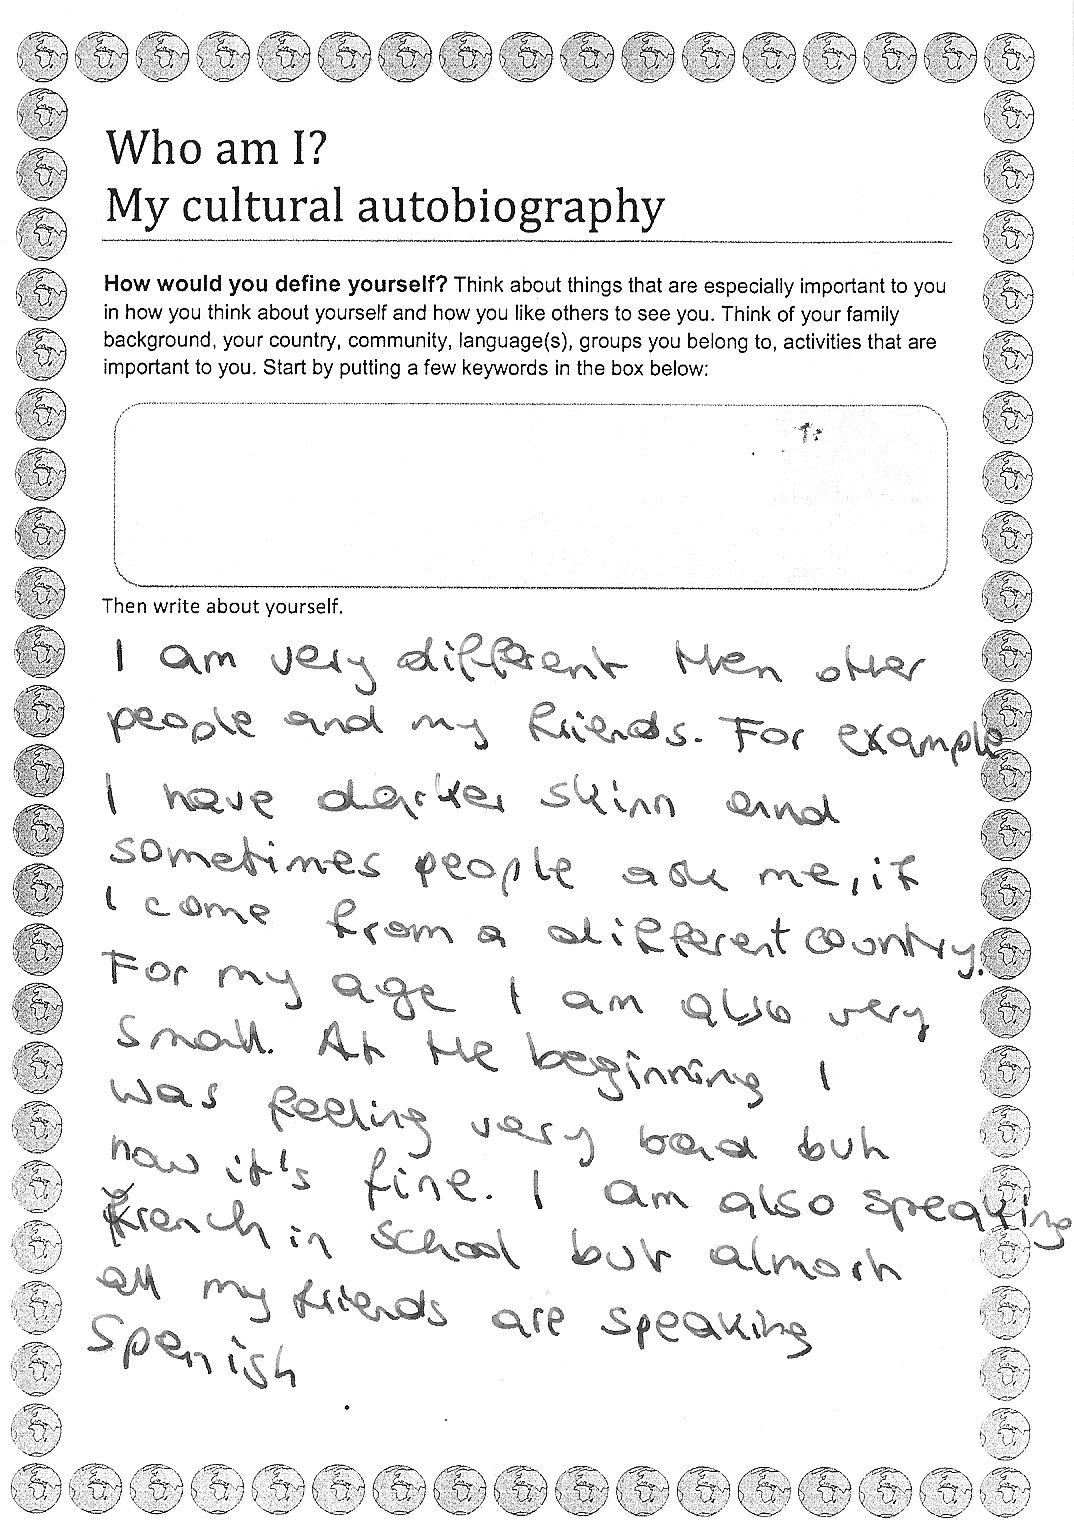 Who am I?
My cultural autobiography
How would you define yourself? Think about things that are especially important to you
in how you think about yourself and how you like others to see you. Think of your family
background, your country, community, language(s), groups you belong to, activities that are
important to you. Start by putting a few keywords in the box below:
Then write about yourself.
I am very different then other
people and my friends. For example
I have darker skinn and
sometimes people ask me, if
I come from a different country.
For my age I am also very
small. At the beginning I
was feeling very bad but
now it's fine. I am also speaking
French in school but almost
all my friends are speaking
Spenish